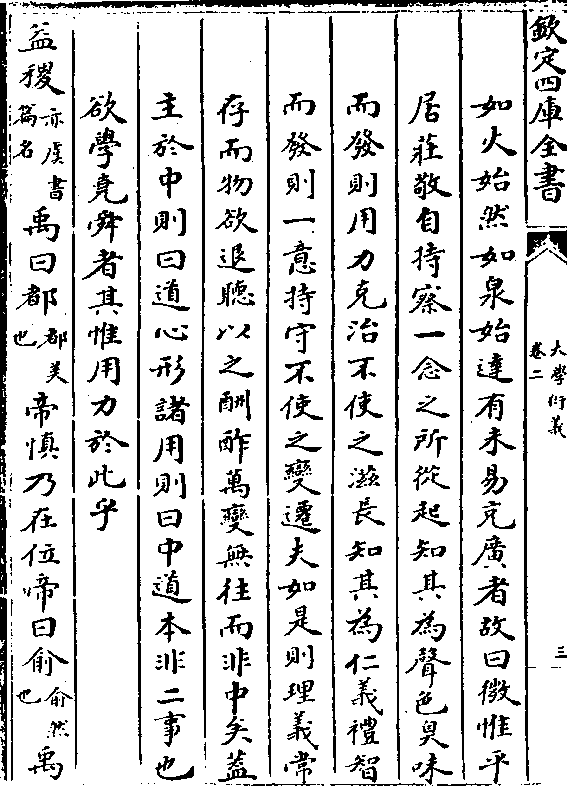 欽定四庫全書
大學衍義
卷二
三
如火始然如泉始達有未易充廣者故曰微惟平
居莊敬自持察一念之所從起知其為聲色臭味
而發則用力克治不使之滋長知其為仁義禮智
而發則一意持守不使之變遷夫如是則理義常
存而物欲退聽以之酬酢萬變無往而非中矣蓋
主於中則曰道心形諸用則曰中道本非二事也
欲學堯舜者其惟用力於此乎
益稷亦虞書篇名禹曰都都美也帝慎乃在位帝曰俞俞然也禹